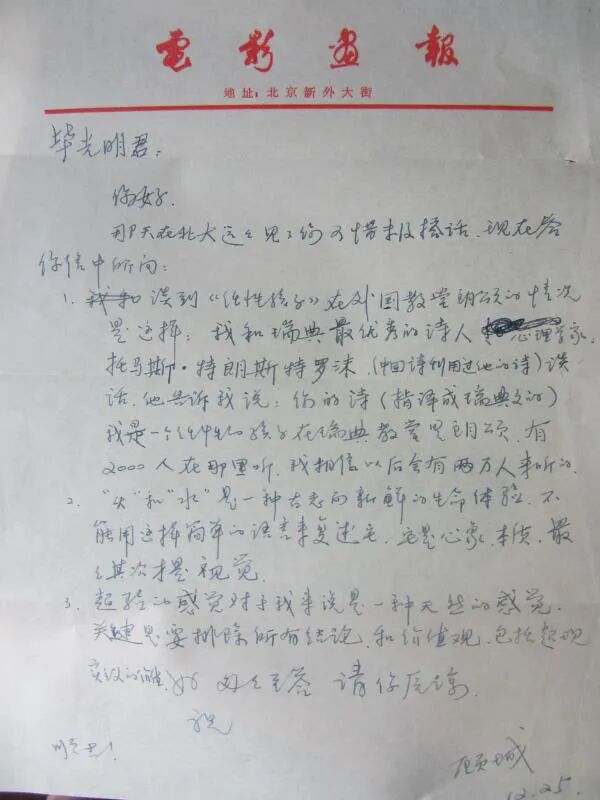 電影畫報
地址：北京新外大街
毕光明君：
你好。
那天在北大远远见了你可惜未及搭话、现在答
你信中所问：
1. 谈到《任性孩子》在外国教堂朗颂的情况
是这样：我和瑞典最优秀的诗人 心理学家、
托马斯·特朗斯特罗沫（中国诗刊用过他的诗）谈
话、他告诉我说：你的诗（指译成瑞典文的）
我是一个任性的孩子在瑞典教堂里朗颂、有
2000人在那里听、我相信以后会有两万人来听的、
2. “火”和“水”是一种古老的新鲜的生命体验、不
能用这样简单的语言来复述它、它是心象、本质、最
最其次才是视觉、
3. 超验的感觉对于我来说是一种天然的感觉、
关键是要排除所有结论、和价值观、包括超现
实 的 好 匆匆至答 请你原谅、
祝
顺
顾城
12.25.